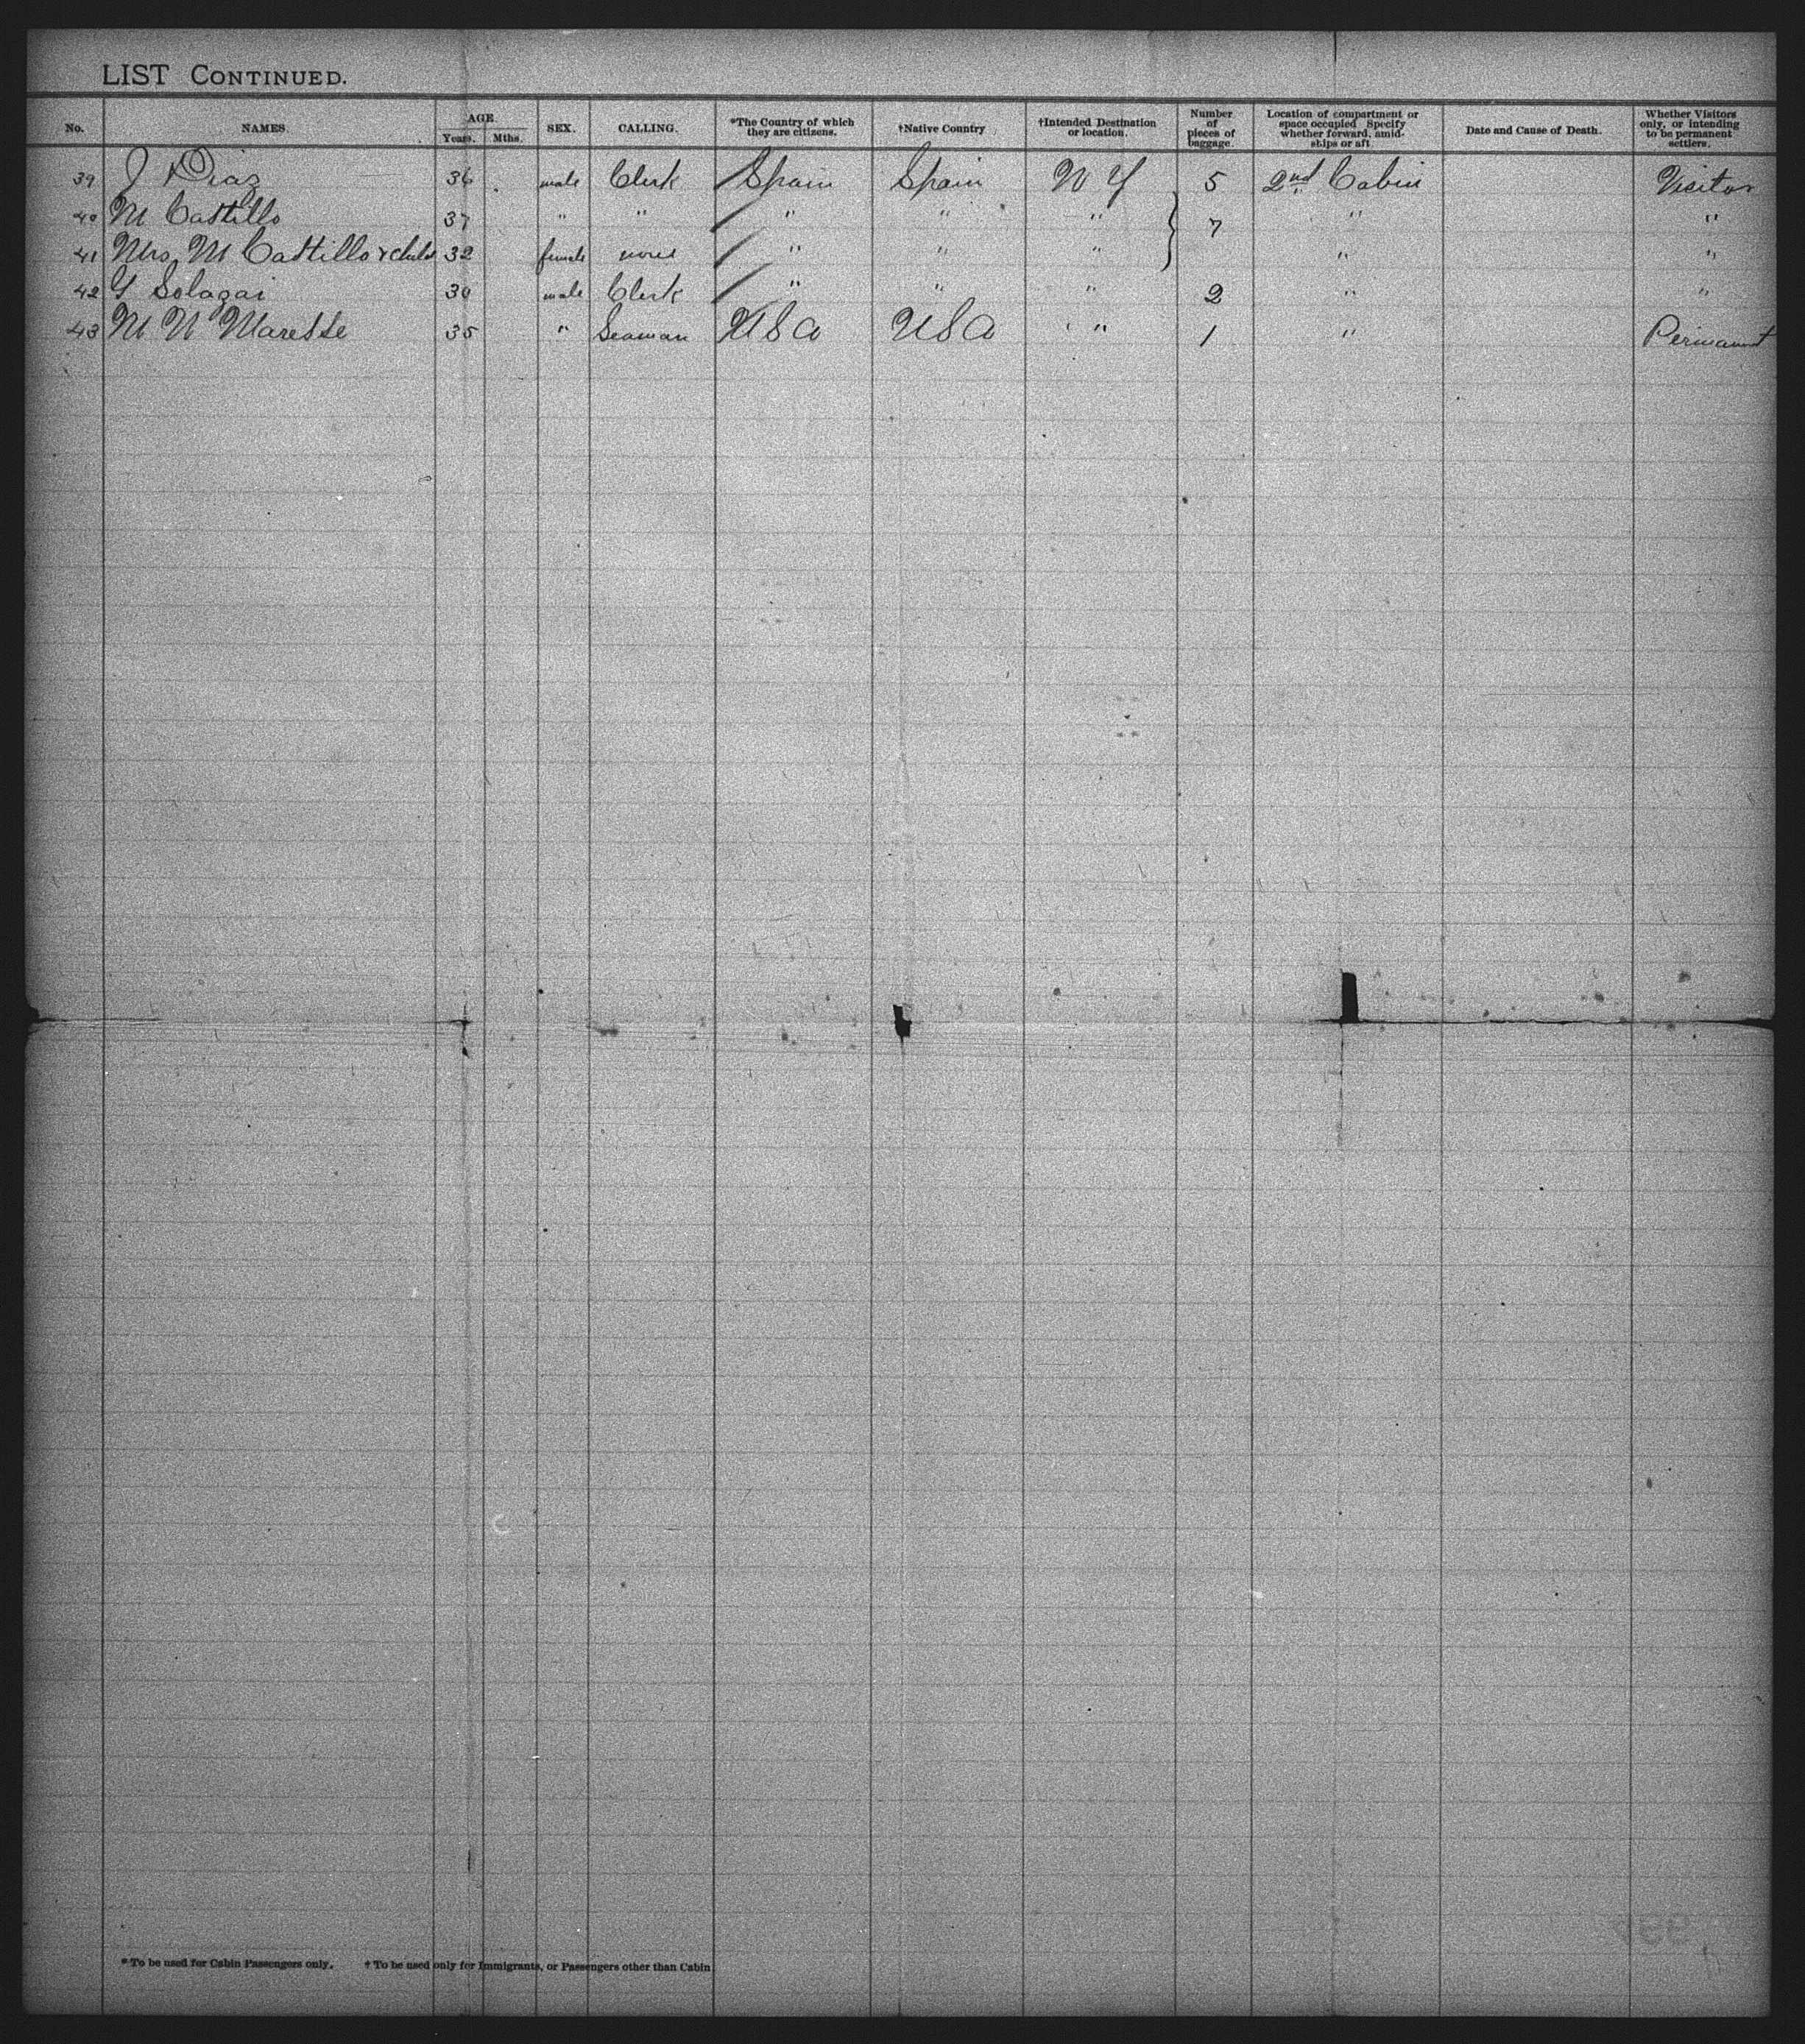 LIST CONTINUED.
No. NAMES. AGE. Years. Mths. SEX. CALLING. *The Country of which they are citizens. †Native Country †Intended Destination or location. Number of pieces of baggage. Location of compartment or space occupied Specify whether forward, amid-ships or aft Date and Cause of Death. Whether Visitors only, or intending to be permanent settlers.
39 J Diaz 36 male Clerk Spain Spain N Y 5 2nd Cabin Visitor
40 M Castillo 37 " " " " " 7 " "
41 Mrs M Castillo & child 32 female none " " " " "
42 G 30 male Clerk " " " 2 " "
43 M N 35 " Seaman USA USA " 1 " Permanent
* To be used for Cabin Passengers only. † To be used only for Immigrants, or Passengers other than Cabin